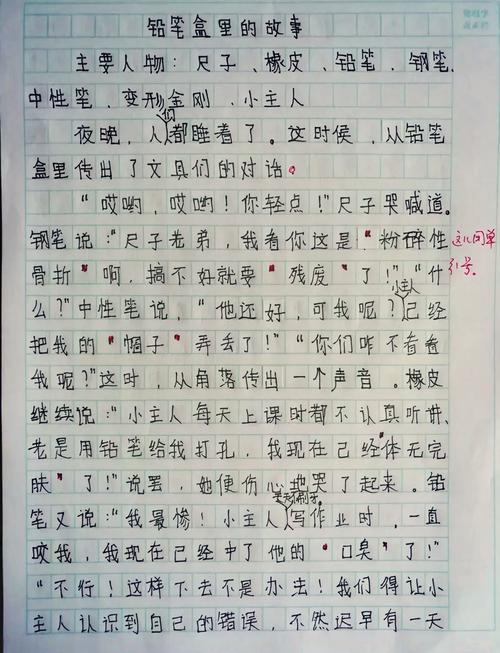 铅笔盒里的故事
主要人物：尺子、橡皮、铅笔、钢笔、
中性笔、变形金刚、小主人
夜晚，人们都睡着了。这时候，从铅笔
盒里传出了文具们的对话。
“哎哟，哎哟！你轻点！”尺子哭喊道。
钢笔说：“尺子老弟，我看你这是“粉碎性
这儿间单
骨折”啊，搞不好就要“残废”了！”“什
引号。
么？”中性笔说，“他还好，可我呢？小主人已经
把我的“帽子”弄丢了！”“你们咋不看看
我呢？”这时，从角落传出一个声音。橡皮
继续说：“小主人每天上课时都不认真听讲，
老是用铅笔给我打孔，我现在已经体无完
肤”了！”说罢，她便伤心地哭了起来。铅
笔又说：“我最惨！小主人写作业时，一直
咬我，我现在已经中了他的“口臭”了！”
“不行！这样下去不是办法！我们得让小
主人认识到自己的错误，不然迟早有一天